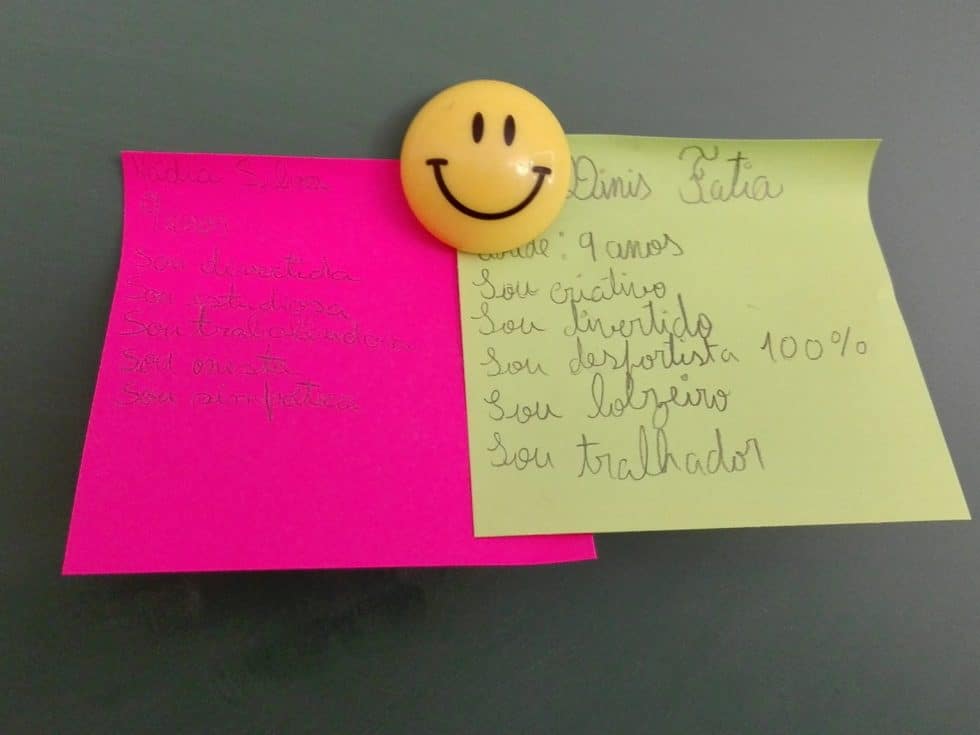 Nádia Silva
9 anos
Sou divertida
Sou estudiosa
Sou trabalhadora
Sou onesta
Sou simpática
Dinis Fatia
idade: 9 anos
Sou criativo
Sou divertido
Sou desportista 100%
Sou
Sou tralhador